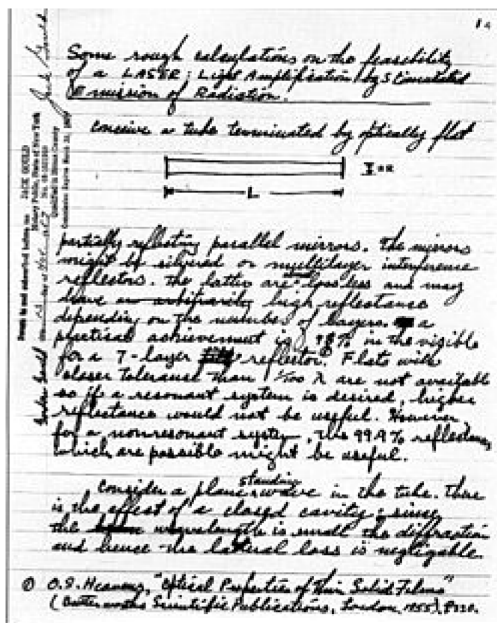 1a
Some rough calculations on the feasibility
of a LASER: Light Amplification by Stimulated
Emission of Radiation.
conceive a tube terminated by optically flat
L
partially reflecting parallel mirrors. The mirrors
might be silvered or multilayer interference
reflectors. The latter are lossless and may
have high reflectance
depending on the number of layers. a
practical achievement is 98% in the visible
for a 7-layer reflector.① Flats with
closer tolerance than 1/100 λ are not available
so if a resonant system is desired, higher
reflectance would not be useful. However
for a nonresonant system, the 99.9% reflectances
which are possible might be useful.
Consider a plane standing wave in the tube. There
is the effect of a closed cavity; since
the wavelength is small the diffraction
and hence the lateral loss is negligable.
① O.S. Heavens, "Optical Properties of Thin Solid Films"
(Butterworths Scientific Publications, London, 1955), p220.
JACK GOULD
Notary Public, State of New York
Qualified in Bronx County
Commission Expires March 30,